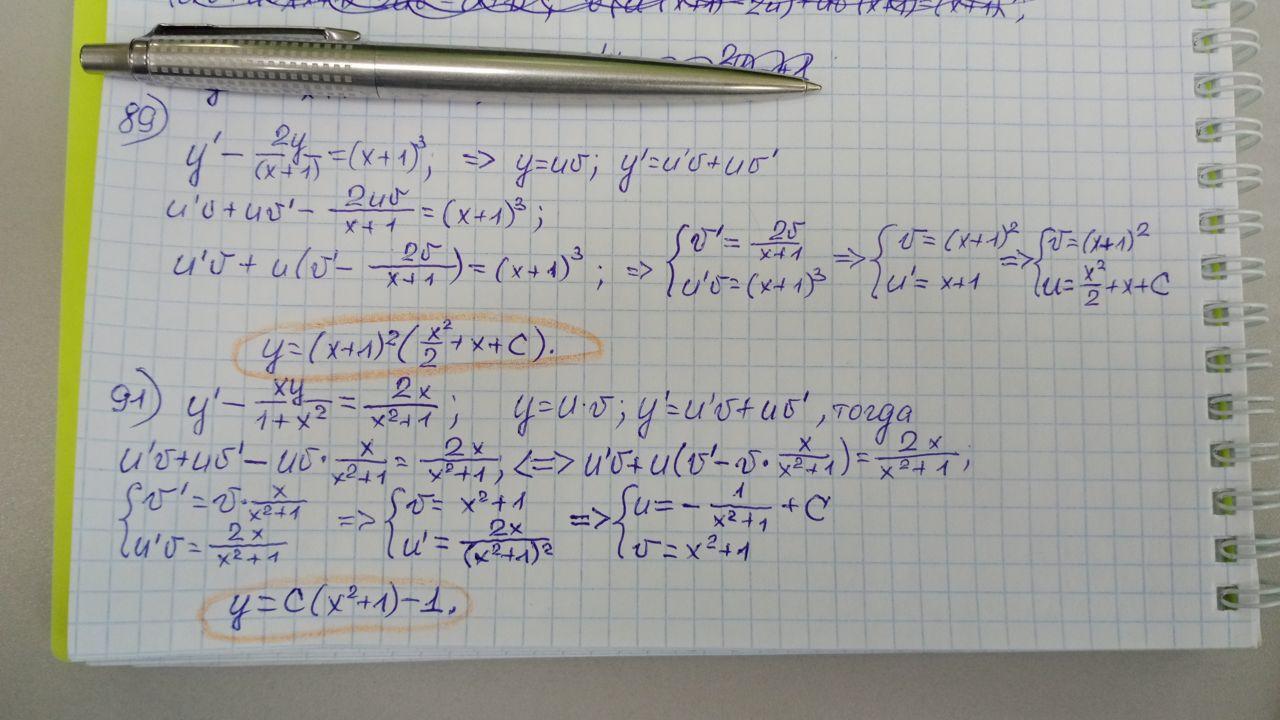 89)
y' - 2y/(x+1) = (x+1)³; => y=uv; y'=u'v+uv'
u'v+uv' - 2uv/(x+1) = (x+1)³;
u'v + u(v' - 2v/(x+1)) = (x+1)³; => { v' = 2v/(x+1) u'v = (x+1)³ => { v = (x+1)² u' = x+1 => { v = (x+1)² u = x²/2 + x + C
y = (x+1)²(x²/2 + x + C).
91) y' - xy/(1+x²) = 2x/(x²+1); y = u·v; y' = u'v+uv', тогда
u'v+uv' - uv·x/(x²+1) = 2x/(x²+1); <=> u'v+u(v' - v·x/(x²+1)) = 2x/(x²+1);
{ v' = v·x/(x²+1) u'v = 2x/(x²+1) => { v = x²+1 u' = 2x/(x²+1)² => { u = -1/(x²+1) + C v = x²+1
y = C(x²+1) - 1.